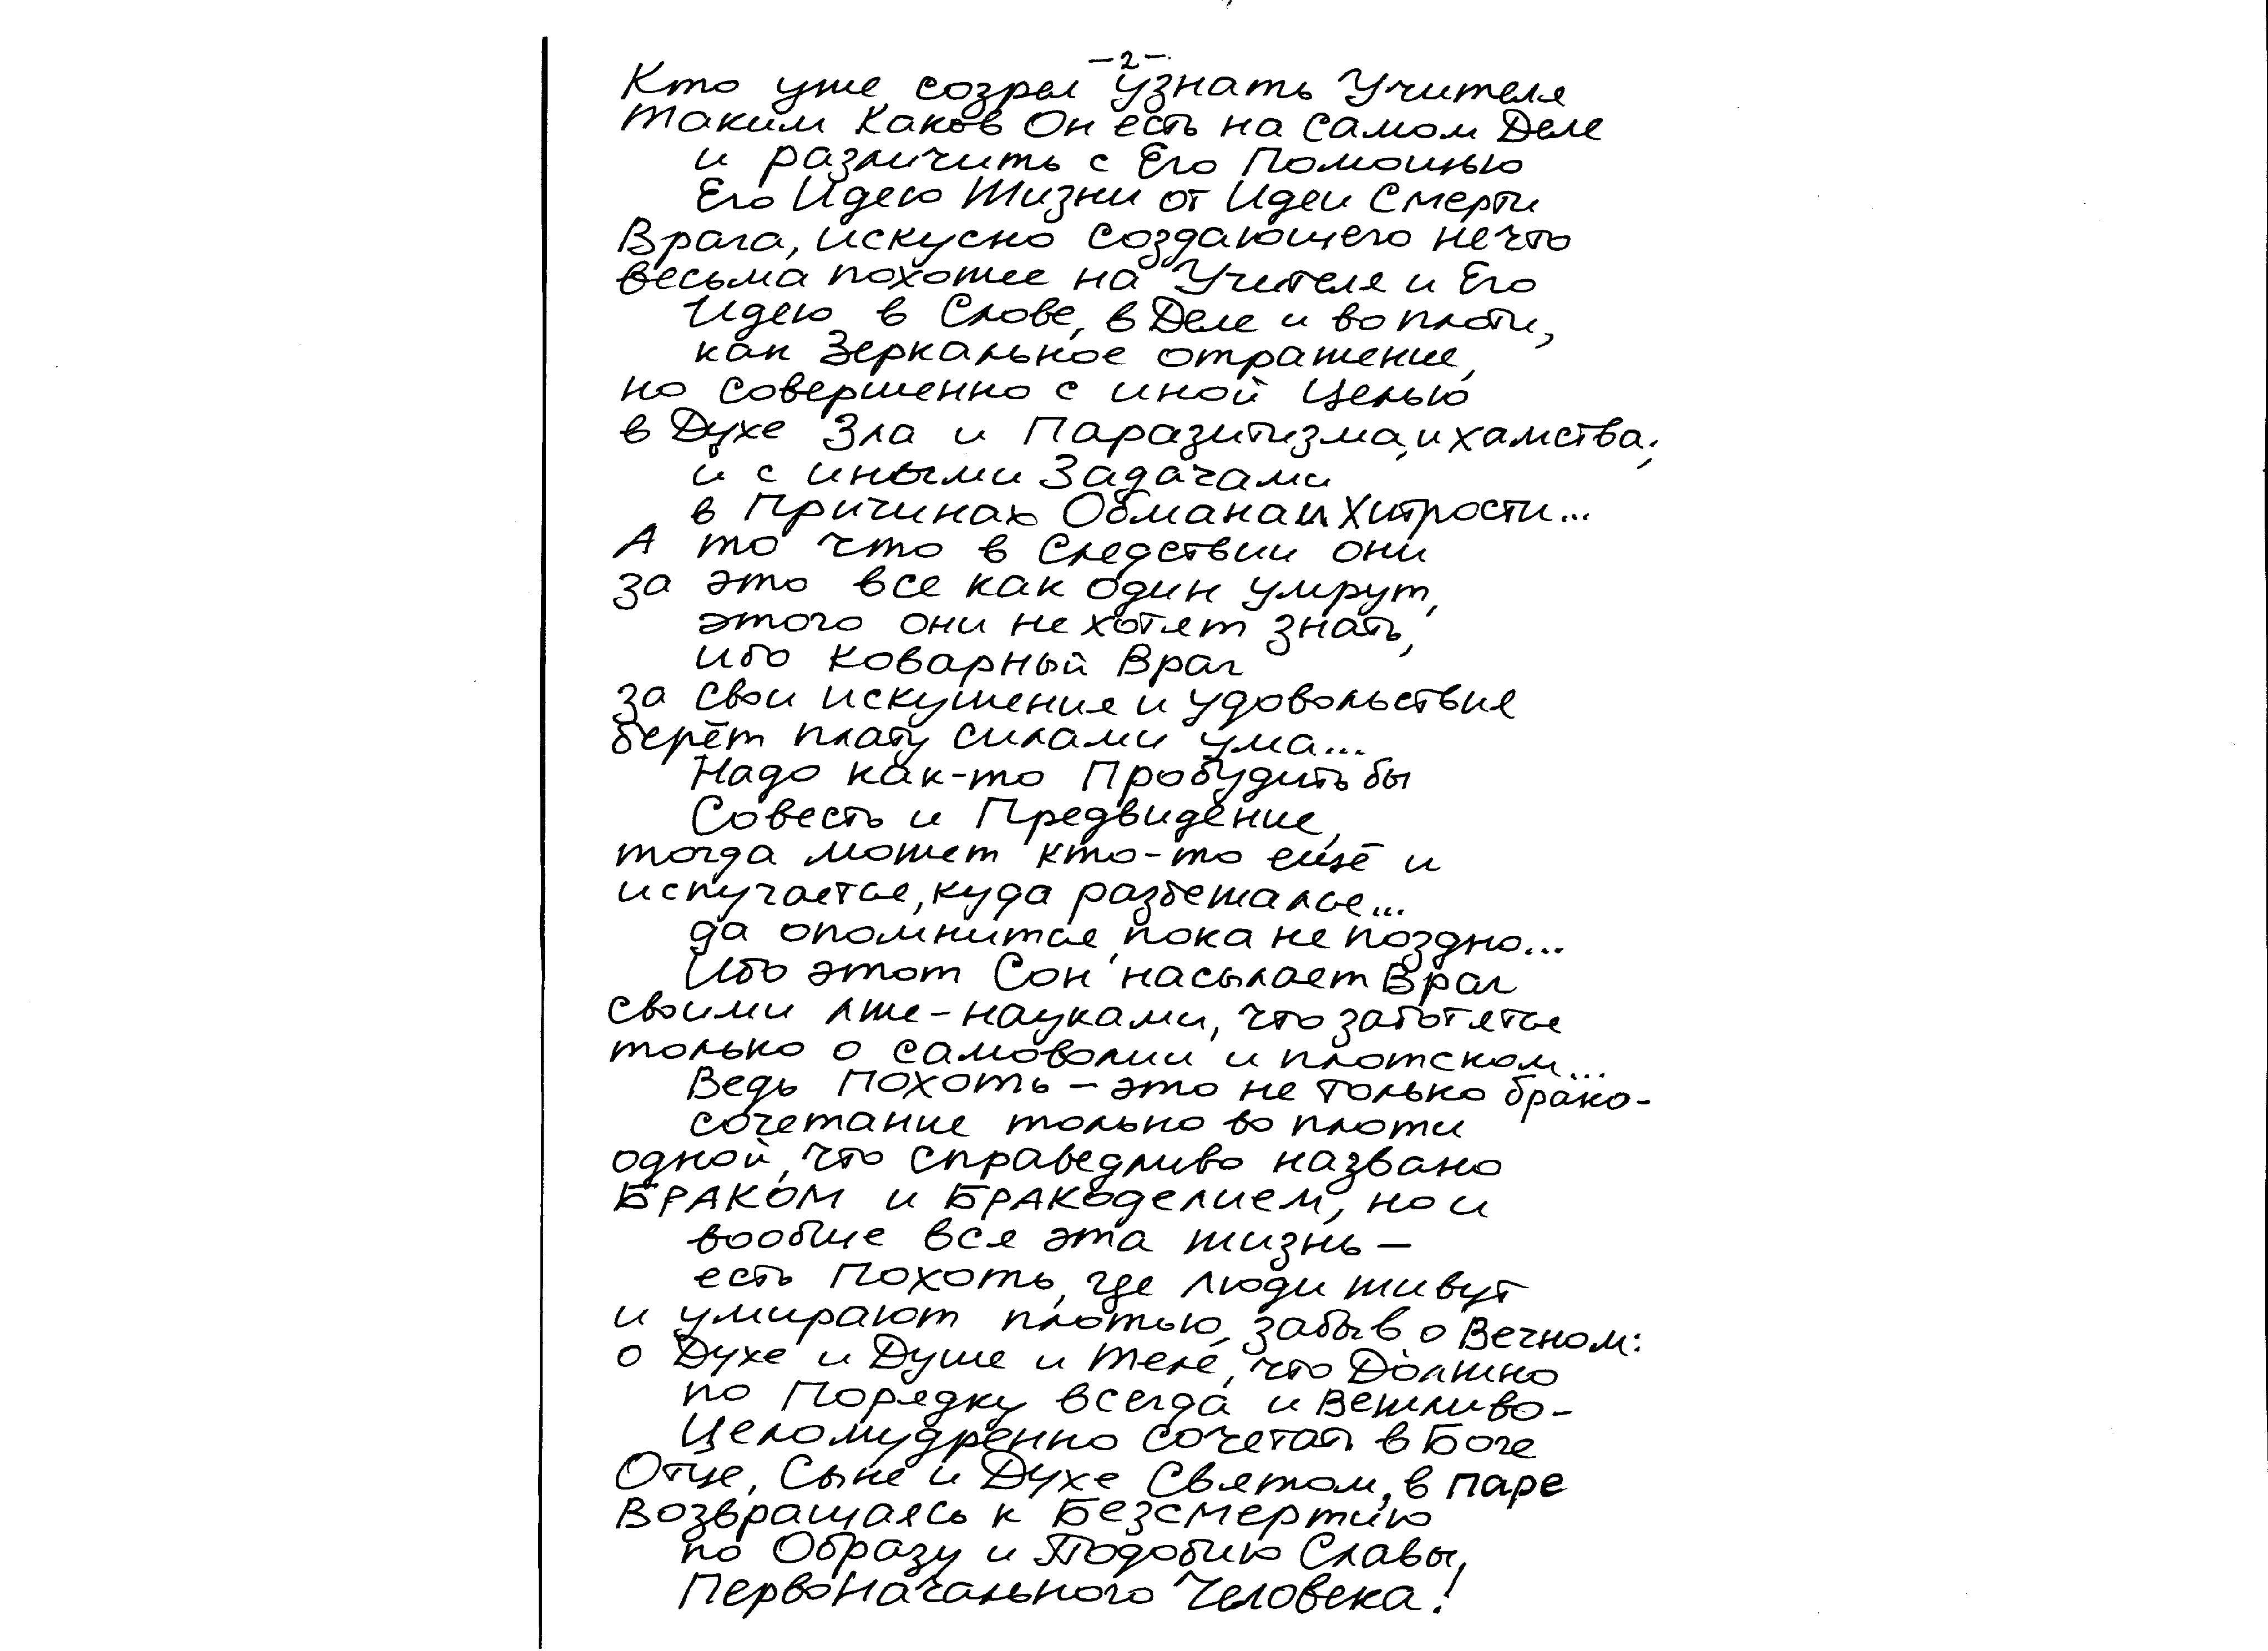 -2-
Кто уже созрел узнать Учителя
таким Каков Он есть на Самом Деле
и различить с Его Помощью
Его Идею Жизни от Идеи Смерти
Врага, искусно создающего нечто
весьма похожее на Учителя и Его
Идею в Слове, в Деле и во плоти,
как Зеркальное отражение,
но совершенно с иной Целью
в Духе Зла и Паразитизма, и хамства;
и с иными Задачами
в Причинах Обмана и Хитрости...
А то что в Следствии они
за это все как один умрут,
этого они не хотят знать,
ибо коварный Враг
за свои искушения и удовольствия
берёт плату силами ума...
Надо как-то Пробудить бы
Совесть и Предвидение,
тогда может кто-то ещё и
испугается, куда разбежался...
да опомнится, пока не поздно...
Ибо этот Сон насылает Враг
своими лже-науками, что заботятся
только о самоволии и плотском...
Ведь Похоть - это не только брако-
сочетание только во плоти
одной, что справедливо названо
БРАКОМ и БРАКоделием, но и
вообще вся эта жизнь -
есть Похоть, где люди живут
и умирают плотью, забыв о Вечном:
о Духе и Душе и Теле, что Должно
по Порядку всегда и Вежливо-
Целомудренно сочетать в Боге
Отце, Сыне и Духе Святом, в паре
Возвращаясь к Безсмертию
по Образу и Подобию Славы,
ПервоНачального Человека!